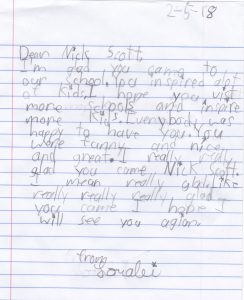 2-5-18
Dear Nick Scott,
I'm glad you came to
our school. You inspired alot
of kids. I hope you visit
more schools and inspire
more kids. Everybody was
happy to have you. You
were funny and nice
and great. I really really
glad you came Nick Scott.
I mean really glad. like
really really really glad
you came I hope I
will see you agian.
from